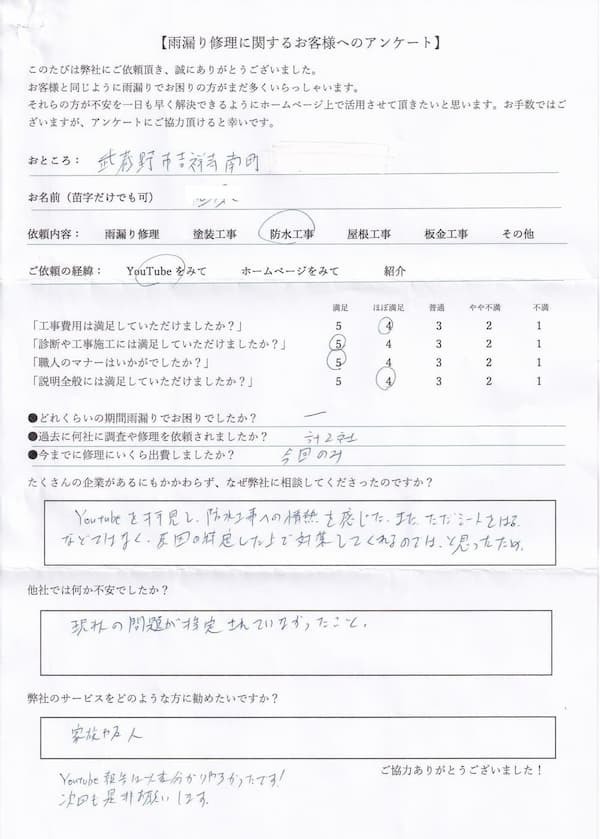 【雨漏り修理に関するお客様へのアンケート】
このたびは弊社にご依頼頂き、誠にありがとうございました。
お客様と同じように雨漏りでお困りの方がまだ多くいらっしゃいます。
それらの方が不安を一日も早く解決できるようにホームページ上で活用させて頂きたいと思います。お手数ではご
ざいますが、アンケートにご協力頂けると幸いです。
おところ： 武蔵野市吉祥寺南町
お名前（苗字だけでも可）
依頼内容： 雨漏り修理 塗装工事 防水工事 屋根工事 板金工事 その他
ご依頼の経緯： YouTubeをみて ホームページをみて 紹介
満足 ほぼ満足 普通 やや不満 不満
「工事費用は満足していただけましたか？」 5 4 3 2 1
「診断や工事施工には満足していただけましたか？」 5 4 3 2 1
「職人のマナーはいかがでしたか？」 5 4 3 2 1
「説明全般には満足していただけましたか？」 5 4 3 2 1
●どれくらいの期間雨漏りでお困りでしたか？ ー
●過去に何社に調査や修理を依頼されましたか？ 計2社
●今までに修理にいくら出費しましたか？ 今回のみ
たくさんの企業があるにもかかわらず、なぜ弊社に相談してくださったのですか？
Youtubeを拝見し、防水工事への情熱を感じた。また、ただシートをはる
などではなく、原因の特定した上で対策してくれるのでは、と思ったため。
他社では何か不安でしたか？
現状の問題が特定されていなかったこと。
弊社のサービスをどのような方に勧めたいですか？
家族や友人
ご協力ありがとうございました！
Youtube報告は大変分かりやすかったです！
次回も是非お願いします。